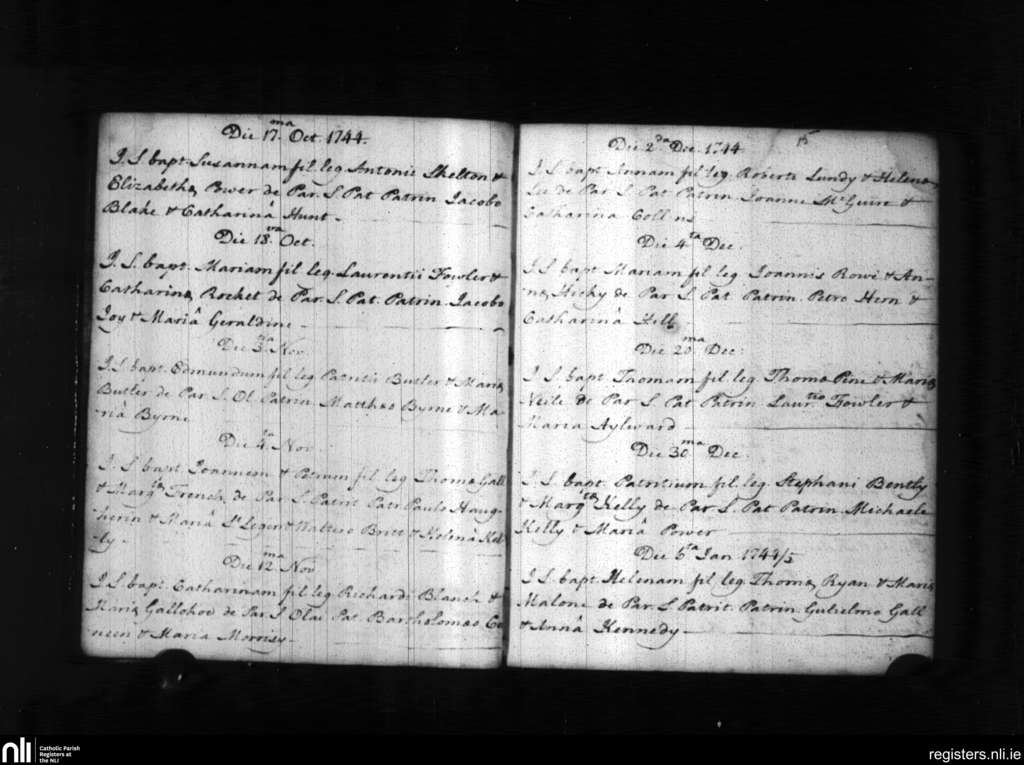 Die 17.ma Oct 1744.
I. S bapt Susannam fil leg Antonii Skelton &
Elizabethæ Power de Par. S Pat Patrin Iacobo
Blake & Catharinâ Hunt -
Die 18.va Oct.
I. S. bapt. Mariam fil leg. Laurentii Fowler &
Catharinæ Rocket de Par S. Pat. Patrin. Iacobo
Ioy & Mariâ Geraldine -
Die 3.ia Nov.
I. S. bapt. Edmundum fil leg Patritii Butler & Mariæ
Butler de Par. S. Ol. Patrin. Matthæo Byrne & Ma-
riâ Byrne
Die 4.ta Nov
I. S bapt Ioannem & Petrum fil leg Thomæ Gall
& Marg.tæ French de Par S. Patrit Patr Paulo Haug-
herin & Mariâ St Leger & Waltero Britt & Helenâ Kel-
ly -
Die 12.ma Nov
I. S. bapt. Catharinam fil leg Richardi Blanch &
Mariæ Gallohoe de Par S Olai Pat. Bartholomæo Cu
neen & Maria Morrisy -
15
Die 2.da Dec. 1744
I. S bapt Annam fil leg. Roberti Lundy & Helenæ
Lee de Par S. Pat Patrin Ioanne McGuire &
Catharina Collins
Die 4.ta Dec.
I. S bapt Mariam fil leg Ioannis Rowe & An-
næ Hicky de Par S. Pat Patrin. Petro Hern &
Catharinâ Hill
Die 20.ma Dec:
I. S. bapt. Thomam fil leg Thomæ Pine & Mariæ
Neile de Par S Pat Patrin Laurtio Fowler &
Maria Aylward
Die 30.ma Dec.
I. S. bapt. Patritium fil. leg Stephani Bently
& Marg.tæ Kelly de Par S. Pat Patrin Michaele
Kelly & Mariâ Power
Die 6.ta Ian 1744/5
I. S. bapt. Helenam fil leg Thomæ Ryan & Mariæ
Malone de Par S Patrit Patrin. Gulielmo Gall
& Annâ Kennedy -
nli
Catholic Parish
Registers at
the NLI
registers.nli.ie